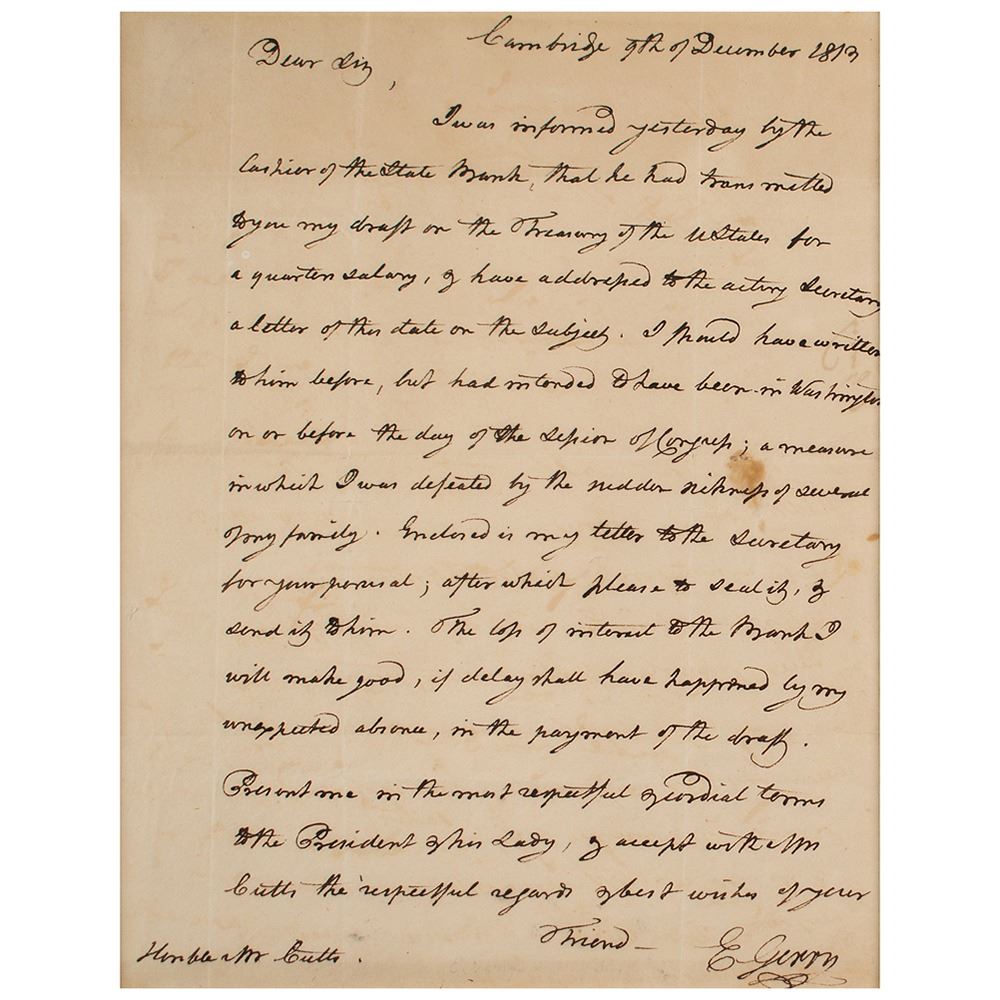 Cambridge 9th of December 1813
Dear Sir,
I was informed yesterday by the
Cashier of the State Bank, that he had transmitted
to you my draft on the Treasury of the U States for
a quarters salary, & have addressed to the acting Secretary
a letter of this date on the subject. I should have written
to him before, but had intended to have been in Washington
on or before the day of the session of Congress; a measure
in which I was defeated by the sudden sickness of several
of my family. Enclosed is my letter to the Secretary
for your perusal; after which please to seal it, &
send it to him. The loss of interest to the Bank I
will make good, if delay shall have happened by my
unexpected absence, in the payment of the draft.
Present me in the most respectful & cordial terms
to the President & his Lady, & accept with Mrs
Cutts the respectful regards & best wishes of your
Friend—
E Gerry
Honble Mr Cutts.